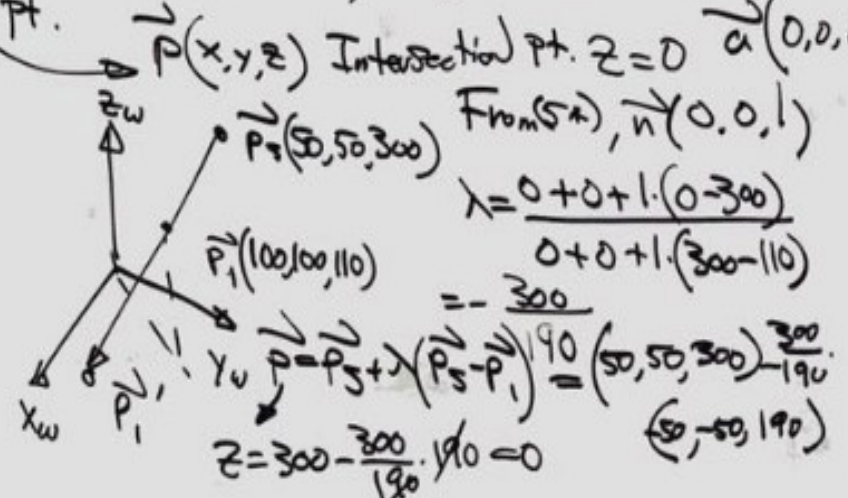 pt.
P(x,y,z) Intersection pt. z=0 a(0,0,
Zw
Ps(50,50,300)
From(5*), n(0,0,1)
λ=0+0+1·(0-300)
0+0+1·(300-110)
P1(100,100,110)
=- 300
190
P=Ps+λ(Ps-P1) = (50,50,300)-300/190·
(-50,-50,190)
Xw
P1'
Yw
Z=300-300/190·190=0